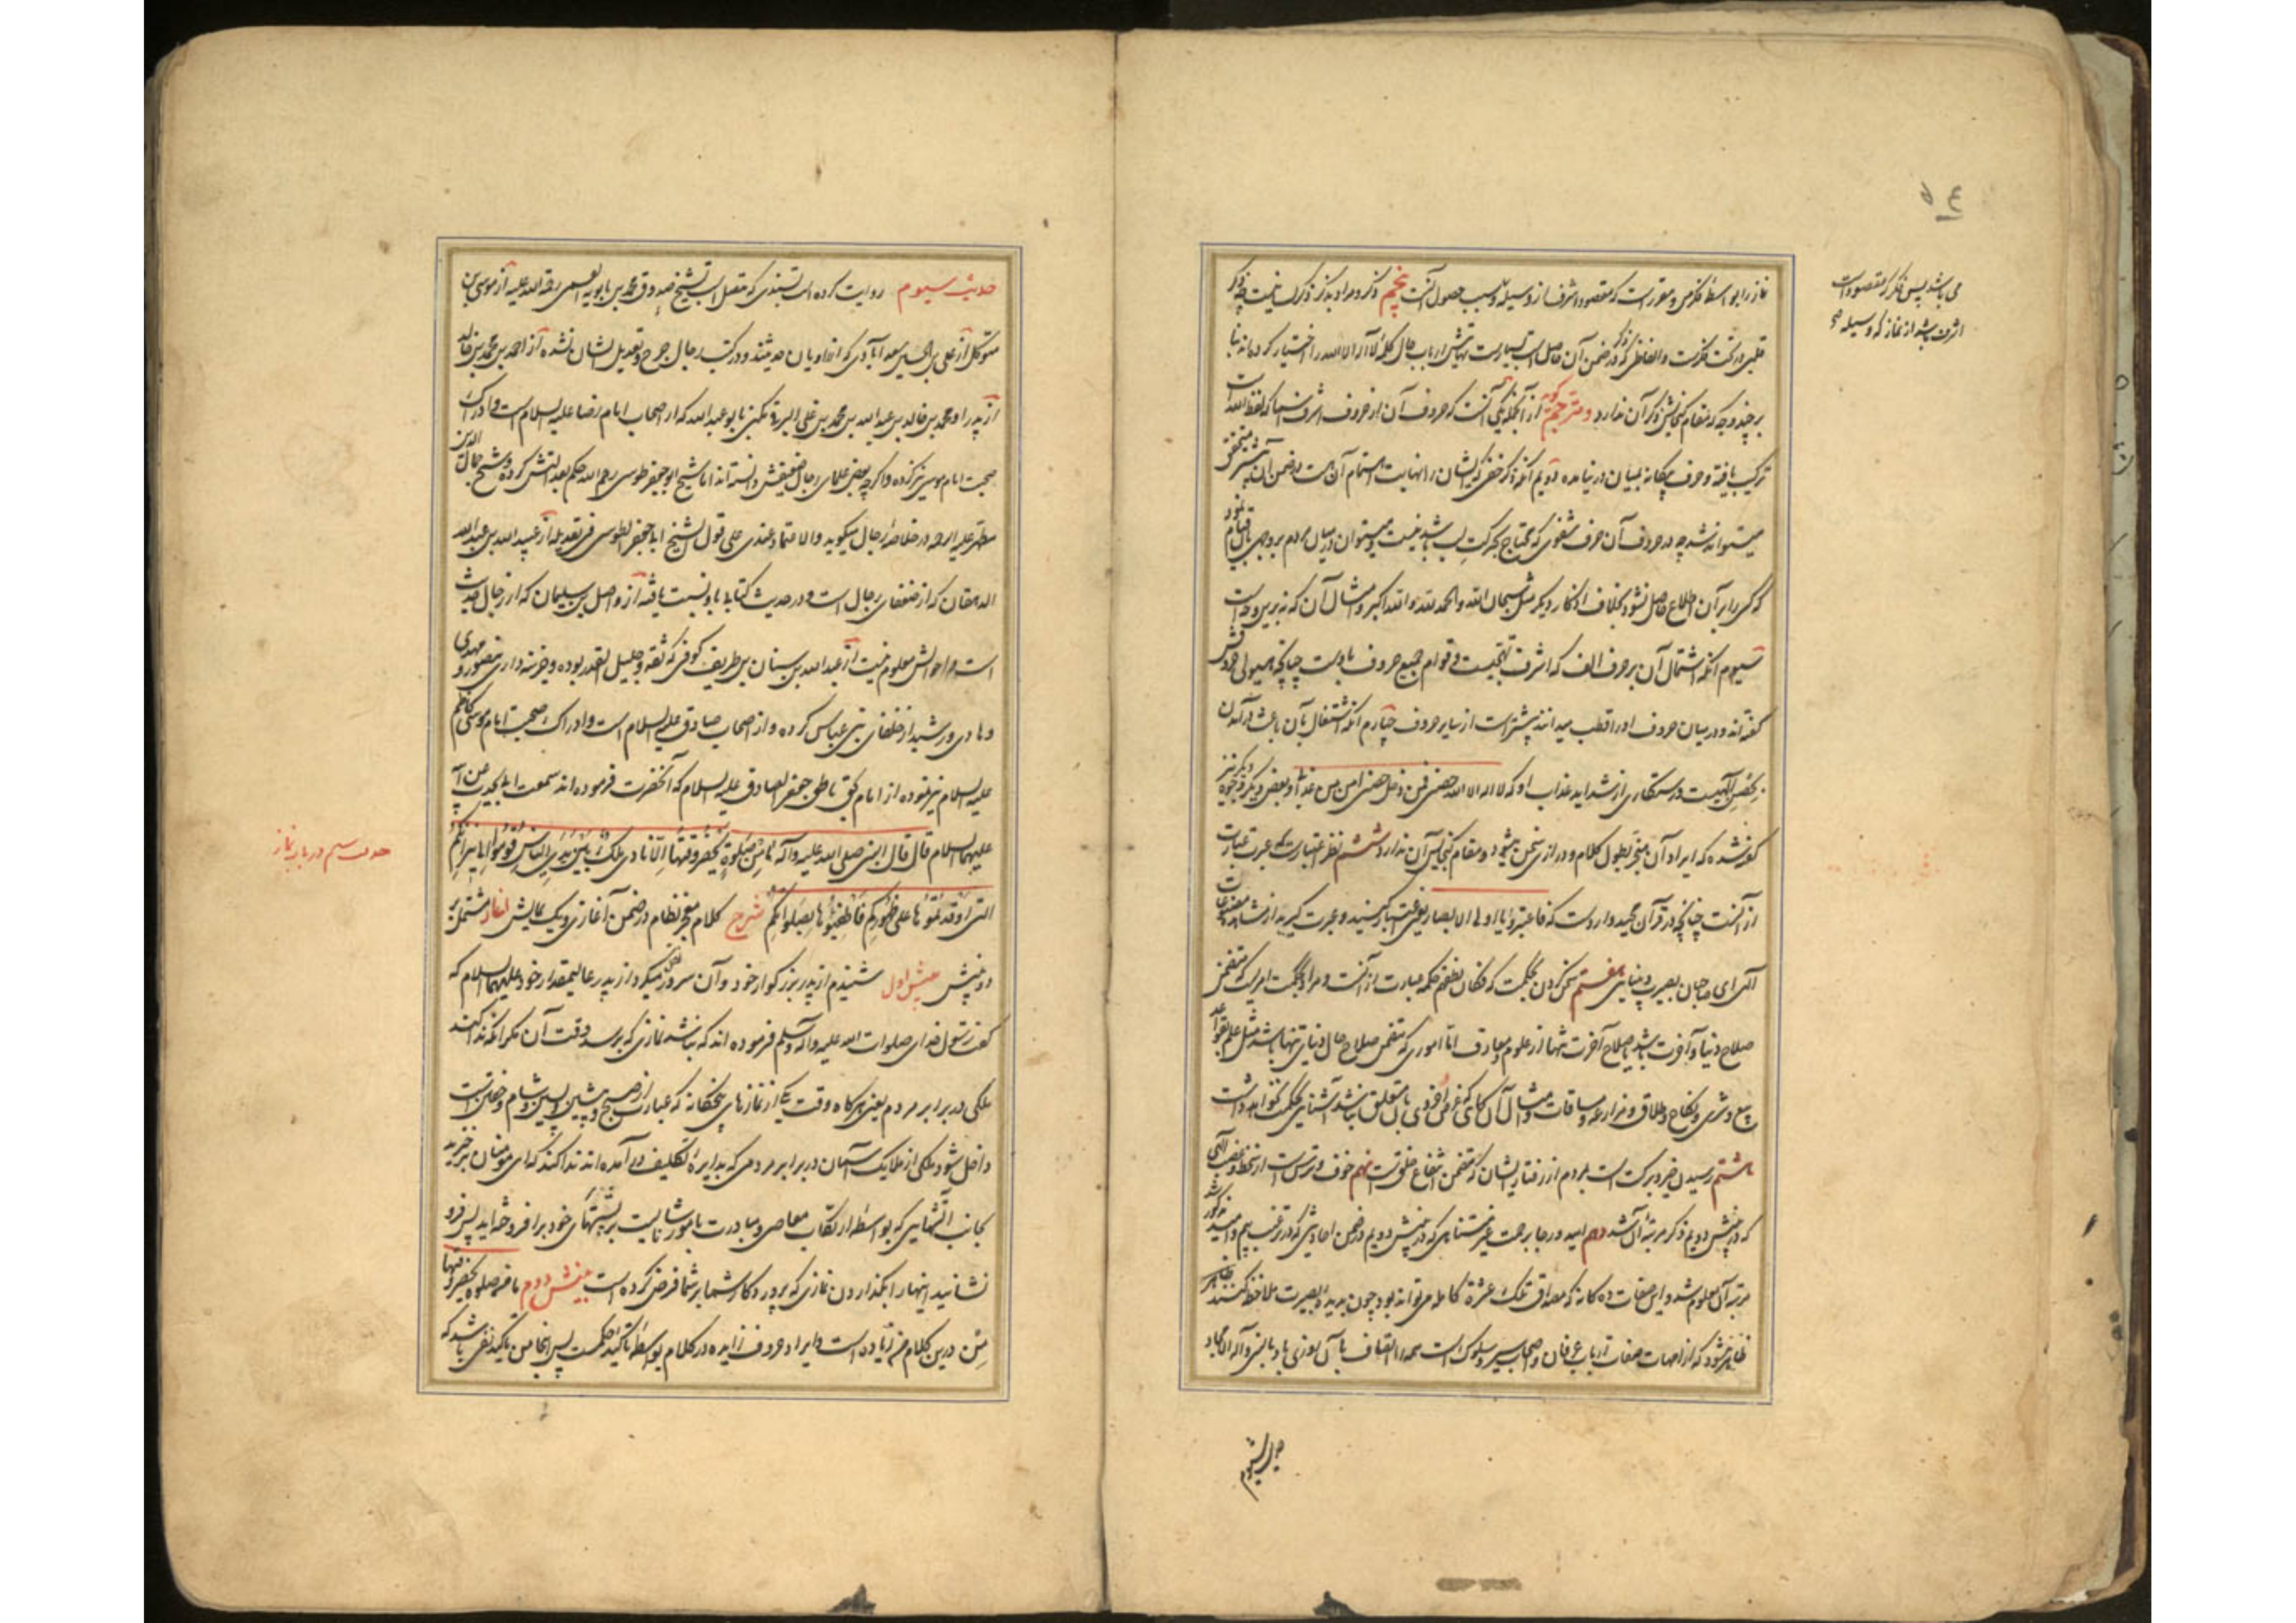 نماز را بواسطه فکر می و مقرر است که مقصود اشرف از وسیله و سبب حصول آنست پنجم ذکر و مراد بذکر ذکر لسانیست چه ذکر
قلبی در تحت فکر است و الفاظی که ذکر در ضمن آن حاصل است بسیارست نهایتش ارباب حال کلمه لا اله الا الله را اختیار کرده‌اند بنا
بر چند وجه که مقام گنجایش ذکر آن ندارد و مترجم گوید از آنجمله یکی آنست که حروف آن از حروف اشرف اسما که لفظ الله است
ترکیب یافته و حرف بیگانه بمیان در نیامده دویم آنکه ذکر خفی که ایشان را نهایت اهتمام آن هست در ضمن آن بیشتر متحقق
میتواند شد چه در حروف آن حرف شفوی که محتاج بحرکت لب باشد نیست و میتوان در میان مردم بر وجهی بآن قیام نمود
که کسی را بر آن اطلاع حاصل نشود بخلاف اذکار دیگر مثل سبحان الله و الحمد لله و الله اکبر و امثال آن که نه برین وجه است
سیوم آنکه اشتمال آن بر حرف الف که اشرف تهجیست و قوام جمیع حروف باوست چنانچه هیولی حروفش
گفته‌اند و در میان حروف او را قطب میدانند بیشتر است از سایر حروف چهارم آنکه اشتغال بآن باعث درآمدن
بحصن الهیست و رستگاری از شداید عذاب او که لا اله الا الله حصنی فمن دخل حصنی امن من عذابی و بعضی دیگر و وجوه دیگر نیز
گفته شده که ایراد آن منجر بطول کلام و درازی سخن میشود و مقام گنجایش آن ندارد ششم نظر اعتبارست و عبرت عبارت
از آنست چنانچه در قرآن مجید وارد است که فاعتبروا یا اولی الابصار یعنی اعتبار کنید و عبرت گیرید از مشاهده مصنوعات
الهی ای صاحبان بصیرت و بینایی هفتم سخن کردن بحکمت که فکان نطقهم حکمه عبارت از آنست و مراد بحکمت امریست که متضمن
صلاح دنیا و آخرت باشد یا صلاح آخرت تنها از علوم و معارف اما اموری که متضمن صلاح حال دنیای تنها باشد مثل علم بقواعد
بیع و شری و نکاح و طلاق و مزارعه و مساقات و امثال آن گاهی که غرض اخروی بآن متعلق نباشد آشنایی بحکمت نخواهد داشت
هشتم رسیدن خیر و برکت است بمردم از رفتار ایشان که متضمن انتفاع خلق است نهم خوف و ترس است از سخط و غضب الهی
که در بینش دویم ذکر مرتبه آن شد دهم امید و رجا برحمت غیر متناهی که در بینش دویم در ضمن احادیثی که در ترغیب بیم و امید مذکور شد
مرتبه آن معلوم شد و این صفات ده گانه که مصداق تلک عشرة کامله میتواند بود چون بدیده بصیرت ملاحظه کنند ظاهر
ظاهر شود که از امهات صفات ارباب عرفان و اصحاب سیر و سلوک است رزقنا الله الاتصاف بها بالنبی و آله الامجاد
می باشد پس فکر که مقصود است
اشرف باشد از نماز که وسیله صح
حدیث سیوم
حدیث سیوم روایت کرده است بسندی که متصل است بشیخ صدوق محمد بن بابویه القمی رحمة الله علیه از موسی بن
متوکل از علی بن الحسین سعدآبادی که از راویان حدیثند و در کتب رجال جرح و تعدیل ایشان نشده از احمد بن محمد بن خالد
از پدر او محمد بن خالد بن عبد الله بن محمد بن علی البرقی مکنی بابو عبد الله که از اصحاب امام رضا علیه السلام است و ادراک
صحبت امام موسی نیز کرده و اگرچه بعضی علمای رجال ضعیفش دانسته‌اند اما شیخ ابو جعفر طوسی رحمه الله حکم بعدالتش کرده و شیخ جمال الدین
مطهر علیه الرحمه در خلاصه رجال میگوید والاعتماد عندی علی قول الشیخ ابی جعفر الطوسی فی تعدیله از عبید الله بن عبد الله
الدهقان که از ضعفای رجال است و در حدیث کتابه باو نسبت یافته از واصل بن سلیمان که از رجال حدیث
است و احوالش معلوم نیست از عبد الله بن سنان بن طریف کوفی که ثقه و جلیل القدر بوده و خزینه داری منصور و مهدی
و هادی و رشید از خلفای بنی عباس کرده و از اصحاب صادق علیه السلام است و ادراک صحبت امام موسی کاظم
علیه السلام نیز نموده از امام بحق ناطق جعفر الصادق علیه السلام که آنحضرت فرموده‌اند سمعت ابی یحدث عن ابیه
علیهما السلام قال قال النبی صلی الله علیه وآله ما من صلوة یحضر وقتها الا نادی ملک بین یدی الناس قوموا الی نیرانکم
التی اوقدتموها علی ظهورکم فاطفئوها بصلواتکم شرح کلام معجز نظام در ضمن آغازی و یک نمایش آغاز مشتمل بر
دو بینش بینش اول شنیدم از پدر بزرگوار خود و آن سرور نقل میکرد از پدر عالیمقدار خود علیهما السلام که
گفت رسول خدای صلوات الله علیه وآله وسلم فرموده‌اند که نباشد نمازی که برسد وقت آن مگر آنکه ندا کند
ملکی در برابر مردم یعنی هرگاه وقت یکی از نمازهای پنجگانه که عبارت از صبح و پیشین و پسین و شام و خفتن است
داخل شود ملکی از ملایک آسمان در برابر مردمی که بدایره تکلیف در آمده‌اند ندا کند که ای مومنان برخیزید
بجانب آتشهایی که بواسطه ارتکاب معاصی و مبادرت بامور ناشایست بر پشتهای خود برافروخته‌اید پس فرو
نشانید اینها را بگذاردن نمازی که پروردگار شما بر شما فرض کرده است بینش دوم ما من صلوة یحضر وقتها
من درین کلام من زیاده است و ایراد حروف زایده در کلام بواسطه تاکید حکمست پس اینجا من تاکید نفی باشد که
حدیث سیم در باب نماز